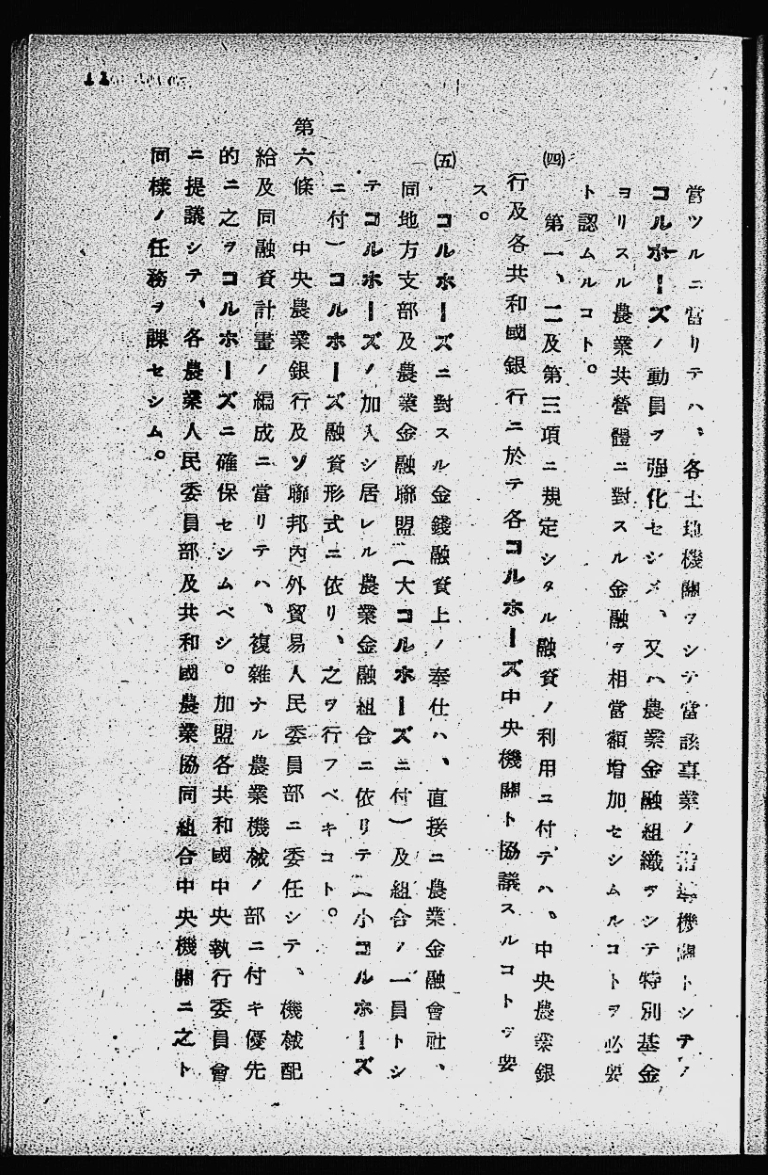 當ツルニ當リテハ、各土地機關ヲシテ當該事業ノ指導機關トシテノ
コルホーズノ動員ヲ强化セシメ、又ハ農業金融組織ヲシテ特別基金
ヨリスル農業共營體ニ對スル金融ヲ相當額增加セシムルコトヲ必要
ト認ムルコト。
㈣ 第一、二及第三項ニ規定シタル融資ノ利用ニ付テハ、中央農業銀
行及各共和國銀行ニ於テ各コルホーズ中央機關ト協議スルコトヲ要
ス。
㈤ コルホーズニ對スル金錢融資上ノ奉仕ハ、直接ニ農業金融會社、
同地方支部及農業金融聯盟(大コルホーズニ付)及組合ノ一員トシ
テコルホーズノ加入シ居レル農業金融組合ニ依リテ(小コルホーズ
ニ付)コルホーズ融資形式ニ依リ、之ヲ行フベキコト。
第六條 中央農業銀行及ソ聯邦內外貿易人民委員部ニ委任シテ、機械配
給及同融資計畫ノ編成ニ當リテハ、複雜ナル農業機械ノ部ニ付キ優先
的ニ之ヲコルホーズニ確保セシムベシ。加盟各共和國中央執行委員會
ニ提議シテ、各農業人民委員部及共和國農業協同組合中央機關ニ之ト
同樣ノ任務ヲ課セシム。